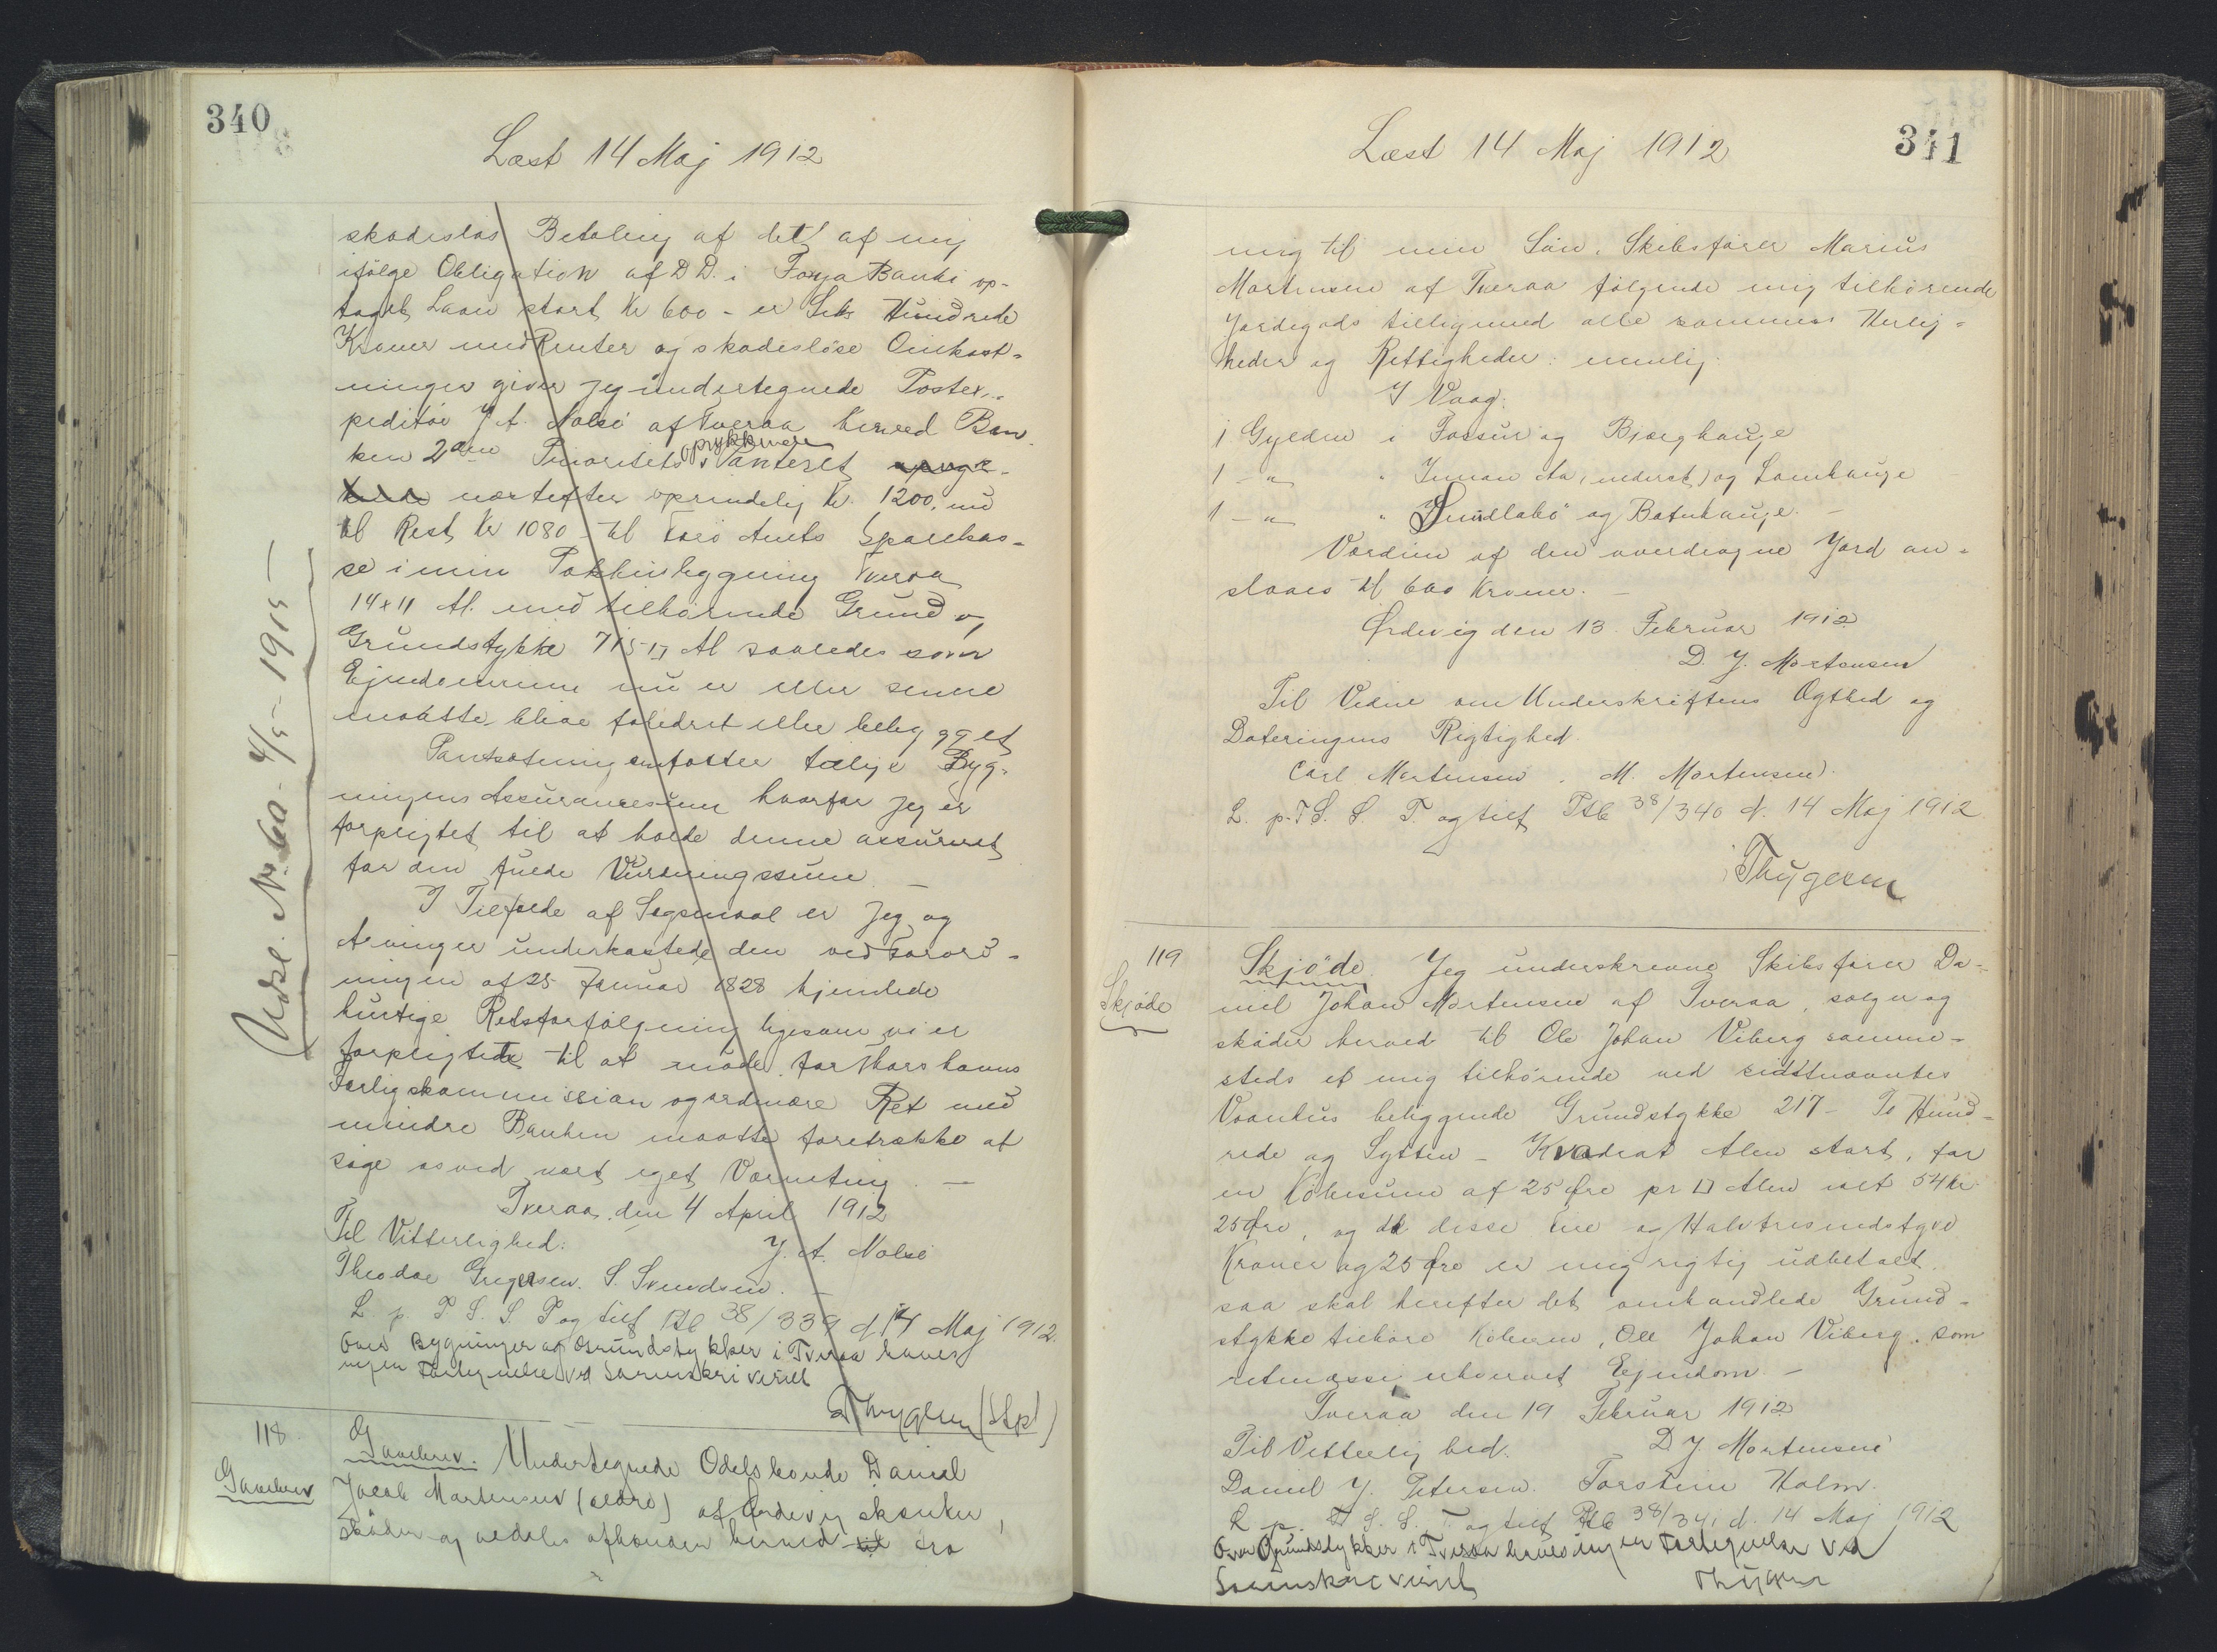 340
Læst 14 Maj 1912
skadesløs Betaling af det af mig
ifølge Obligation af D D. i Færø Banki op-
taget Laan stort Kr 600 - er Seks Hundrede
Kroner med Renter og skadesløse Omkost-
ninger giver jeg undertegnede Postex-
peditør J. A. Nolsø af Tveraa herved Ban
ken 2den Prioritets oprykkende Panteret
næstefter oprindelig Kr. 1200, nu
til Rest Kr 1080 til Færø Amts Sparekas-
se i min Pakhusbygning Tveraa
14 x 11 Al. med tilhørende Grund og
Grundstykke 715 □ Al saaledes som
Ejendommene nu er eller senere
maatte blive forbedret eller bebygget
Pantsætning omfatter tillige Byg-
ningens Assurancesum hvorfor jeg er
forpligtet til at holde denne assureret
for den fulde Vurderingssum. —
I Tilfælde af Søgsmaal er jeg og
Arvinger underkastede den ved Forord-
ningen af 25 Januar 1828 hjemlede
hurtige Retsforfølgning ligesom vi er
forpligtede til at møde for Thorshavns
Forligskommission og ordinære Ret med
mindre Banken maatte foretrække at
søge os ved vort eget Værneting. —
Tveraa, den 4 April 1912
Til Vitterlighed: J. A. Nolsø
Theodor Gregersen. S. Svendsen. —
L. p. T S. S. T og tilf Ptb 38/339 d. 14 Maj 1912.
Over Bygninger og Grundstykker i Tveraa haves
ingen Fortegnelse ved Sorenskriveriet
Thygesen (Stpl)
Udsl. No. 60 - 4/5 - 1915 —
118.
Gavebrev
Gavebrev. Undertegnede Odelsbonde Daniel
Jacob Mortensen (ældre) af Ørdevig skænker,
skøder og aldeles afhænder herved til fra
341
Læst 14 Maj 1912
mig til min Søn, Skibsfører Marius
Mortensen af Tveraa følgende mig tilhørende
Jordegods tilligemed alle sammes Herlig-
heder og Rettigheder: nemlig:
I Vaag:
1 Gylden i Fossur og Bjærghauge
1 — " — " Innan Aa (nederst) og Lomhauge
1 — " — " Sundlabø og Batnhauge. —
Værdien af den overdragne Jord an-
slaaes til 600 Kroner. —
Ørdevig den 13 Februar 1912
D. J. Mortensen
Til Vidne om Underskriftens Ægthed og
Dateringens Rigtighed.
Carl Mortensen. M. Mortensen.
L. p. T S. S. T. og tilf Ptb 38/340 d. 14 Maj 1912
Thygesen
119
Skjøde
Skjøde. Jeg underskrevne Skibsfører Da-
niel Johan Mortensen af Tveraa, sælger og
skøder herved til Ole Johan Viberg samme-
steds et mig tilhørende ved sidstnævntes
Vaanhus beliggende Grundstykke 217 - To Hund-
rede og Sytten - Kvadrat Alen stort, for
en Købesum af 25 Øre pr □ Alen ialt 54 Kr
25 Øre, og da disse Fire og Halvtresindstyve
Kroner og 25 Øre er mig rigtig udbetalt,
saa skal herefter det omhandlede Grund-
stykke tilhøre Køberen, Ole Johan Viberg, som
retmæssig erhvervet Ejendom. —
Tveraa den 19 Februar 1912
Til Vitterlighed. D J. Mortensen
Daniel J. Petersen. Torstein Holm.
L p. T S. S. T og tilf Ptb 38/341 d. 14 Maj 1912
Over Grundstykker i Tveraa haves ingen Fortegnelse ved
Sorenskriveriet Thygesen